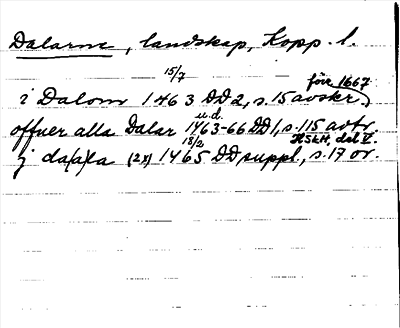 Dalarne, landskap, Kopp. l.
15/7 före 1667
i Dalom 1463 DD2, s. 15 avskr.
u.d.
offuer alla Dalar 1463-66 DD1, s. 115 avtr.
18/2 HSkH, del V.
j da(l)a (2x) 1465 DD suppl., s. 17 or.